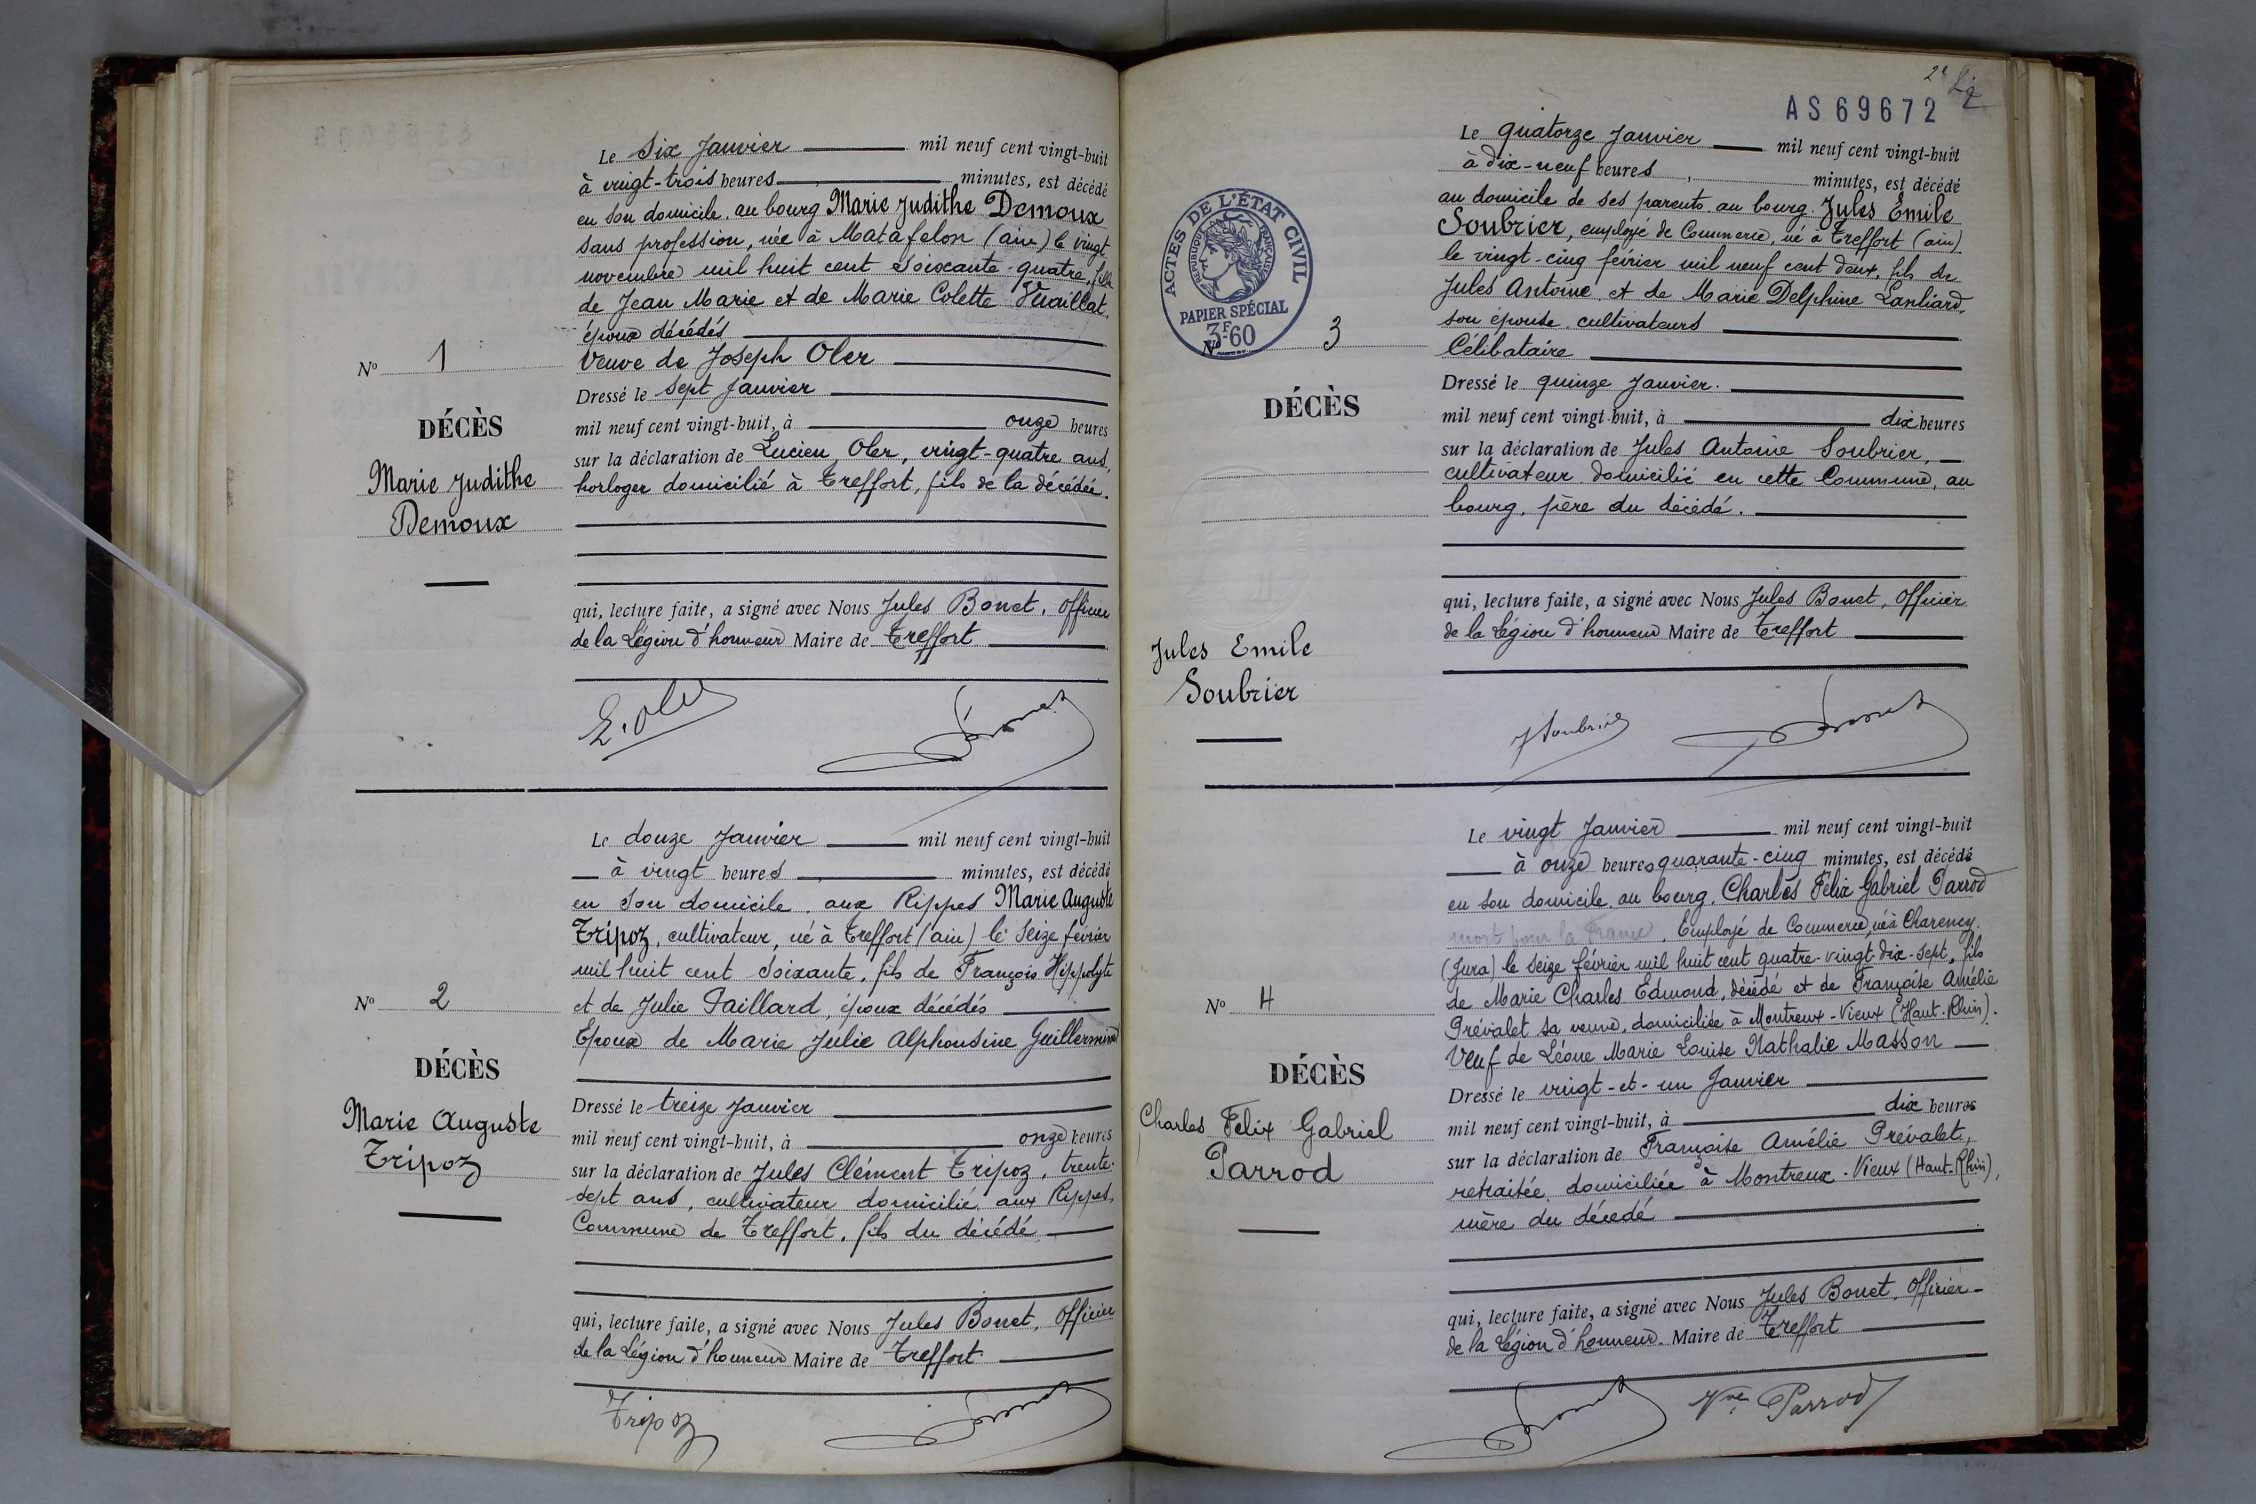 Le six Janvier mil neuf cent vingt-huit
à vingt-trois heures, minutes, est décédé
en son domicile, au bourg Marie Judithe Demoux
sans profession, née à Matafelon (ain) le vingt
novembre mil huit cent soixante-quatre, fille
de Jean Marie et de Marie Colette Vuaillat,
époux décédés
Veuve de Joseph Oler
Nº 1
Dressé le sept Janvier
DÉCÈS
mil neuf cent vingt-huit, à onze heures
sur la déclaration de Lucien Oler, vingt-quatre ans,
Marie Judithe
horloger domicilié à Treffort, fils de la décédée.
Demoux
qui, lecture faite, a signé avec Nous Jules Bonet, Officier
de la Légion d'honneur Maire de Treffort
L. Oler
Le douze Janvier mil neuf cent vingt-huit
à vingt heures, minutes, est décédé
en son domicile, aux Rippes Marie Auguste
Tripoz, cultivateur, né à Treffort (ain) le seize février
mil huit cent soixante, fils de François Hippolyte
Nº 2
et de Julie Paillard, époux décédés
Epoux de Marie Julie Alphonsine Guillermin
DÉCÈS
Dressé le treize Janvier
Marie Auguste
mil neuf cent vingt-huit, à onze heures
Tripoz
sur la déclaration de Jules Clément Tripoz, trente-
sept ans, cultivateur domicilié aux Rippes,
Commune de Treffort, fils du décédé
qui, lecture faite, a signé avec Nous Jules Bonet, Officier
de la Légion d'honneur Maire de Treffort
Tripoz
2e
AS 69672
Le quatorze Janvier mil neuf cent vingt-huit
à dix-neuf heures, minutes, est décédé
au domicile de ses parents au bourg Jules Emile
Soubrier, employé de Commerce, né à Treffort (ain)
le vingt-cinq février mil neuf cent deux, fils de
Jules Antoine et de Marie Delphine Lanliard,
son épouse cultivateurs
Célibataire
ACTES DE L'ÉTAT CIVIL
RÉPUBLIQUE FRANÇAISE
PAPIER SPÉCIAL
3F.60
Nº 3
Dressé le quinze Janvier.
DÉCÈS
mil neuf cent vingt-huit, à dix heures
sur la déclaration de Jules Antoine Soubrier,
cultivateur domicilié en cette Commune, au
bourg, père du décédé.
qui, lecture faite, a signé avec Nous Jules Bonet, Officier
de la Légion d'honneur Maire de Treffort
Jules Emile
Soubrier
J Soubrier
Le vingt Janvier mil neuf cent vingt-huit
à onze heures quarante-cinq minutes, est décédé
en son domicile, au bourg, Charles Félix Gabriel Parrod
mort pour la France, Employé de Commerce, né à Charency
(Jura) le seize février mil huit cent quatre-vingt-dix-sept, fils
de Marie Charles Edmond, décédé et de Françoise Amélie
Prévalet sa veuve, domiciliée à Montreux-Vieux (Haut-Rhin).
Veuf de Léone Marie Louise Nathalie Masson
Nº 4
Dressé le vingt-et-un Janvier
DÉCÈS
mil neuf cent vingt-huit, à dix heures
Charles Felix Gabriel
Parrod
sur la déclaration de Françoise Amélie Prévalet,
retraitée, domiciliée à Montreux-Vieux (Haut-Rhin),
mère du décedé
qui, lecture faite, a signé avec Nous Jules Bonet, Officier
de la Légion d'honneur Maire de Treffort
Vve Parrod